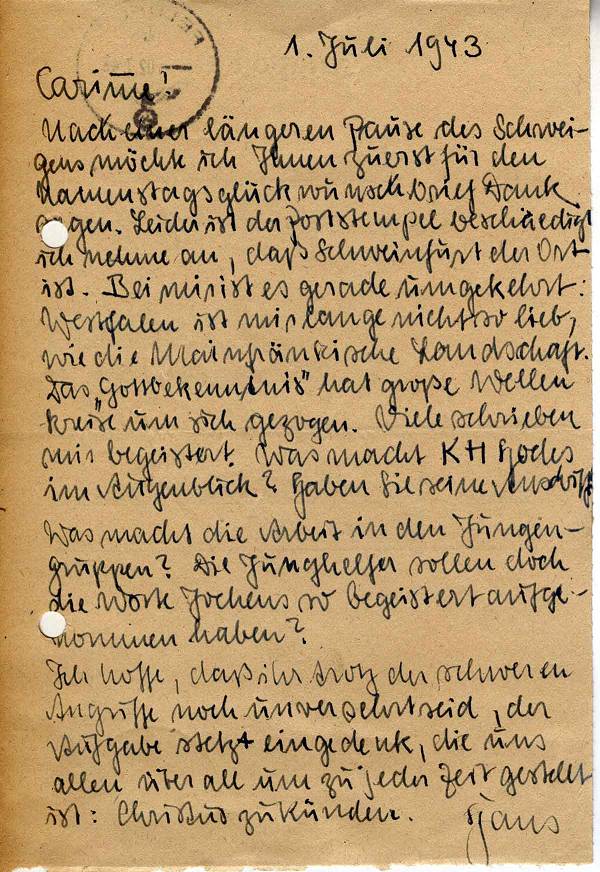 1. Juli 1943
Carissime!
Nach einer längeren Pause des Schwei-
gens möchte ich Ihnen zuerst für den
Namenstagsglückwunschbrief Dank
sagen. Leider ist der Poststempel beschädigt
ich nehme an, daß Schweinfurt der Ort
ist. Bei mir ist es gerade umgekehrt:
Westfalen ist mir lange nicht so lieb,
wie die Mainfränkische Landschaft.
Das „Gottbekenntnis" hat große Wellen
kreise um sich gezogen. Viele schrieben
mir begeistert. Was macht KH
im Augenblick? Haben Sie seine Anschrift?
Was macht die Arbeit in den Jungen-
gruppen? Die Junghelfer sollen doch
die Worte Jochens so begeistert aufge-
nommen haben?
Ich hoffe, daß ihr trotz der schweren
Angriffe noch unversehrt seid, der
Aufgabe stetzt eingedenk, die uns
allen überall um zu jeder Zeit gestellt
ist: Christus zu künden. Hans